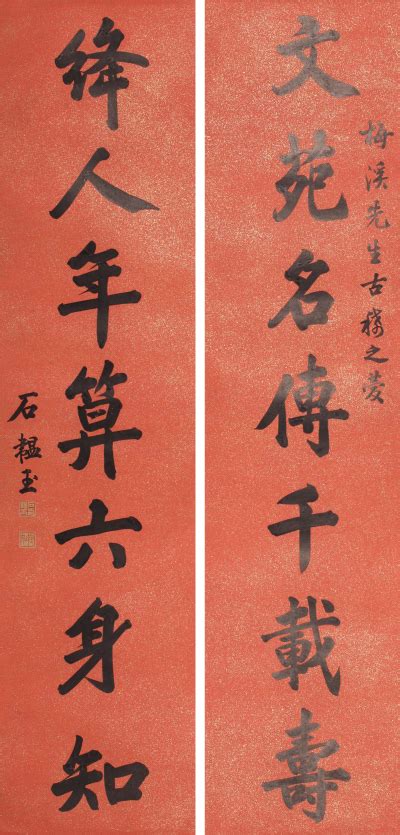 文苑名傳千載壽
梅溪先生古稀之慶
絳人年算六身知
石韞玉